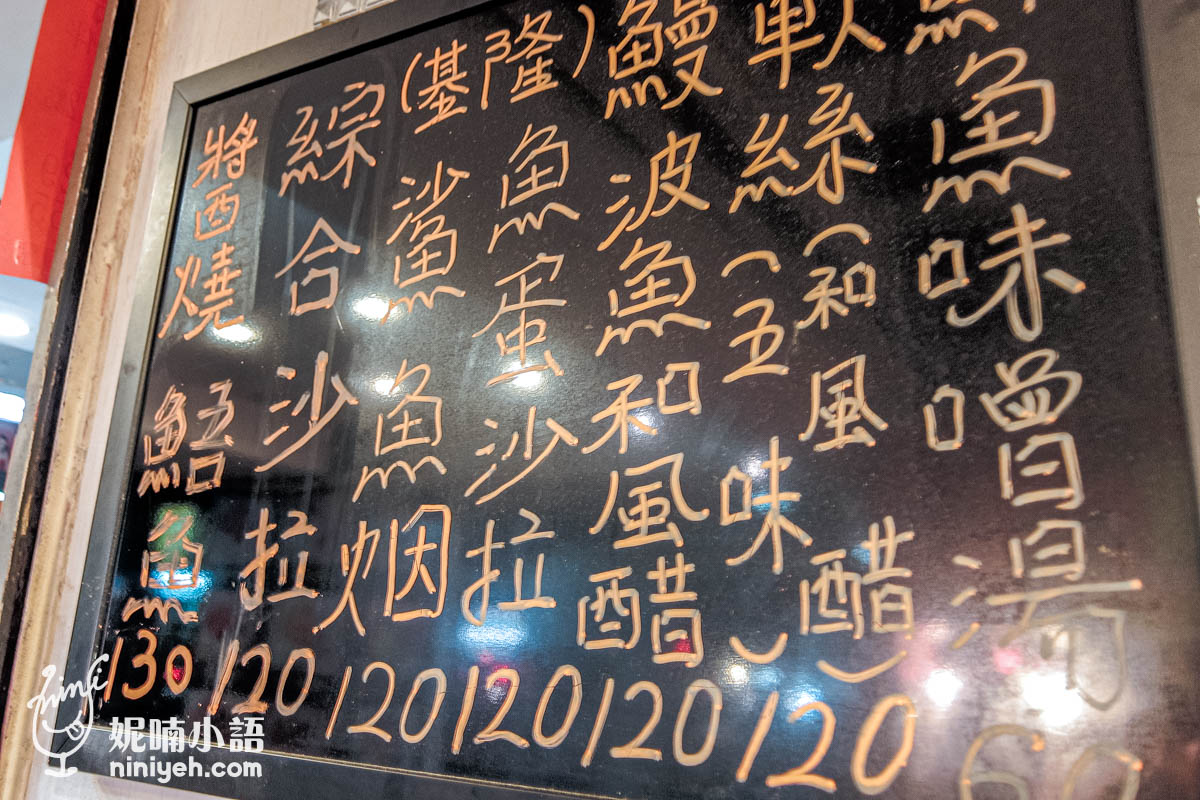 魚味噌湯 60
軟絲(五味)(和風醋) 120
鰻波魚和風醋 120
(基隆)
魚蛋沙拉 120
鯊魚烟 120
綜合沙拉 120
醬燒鯃魚 130
ninji
妮喃小語
niniyeh.com